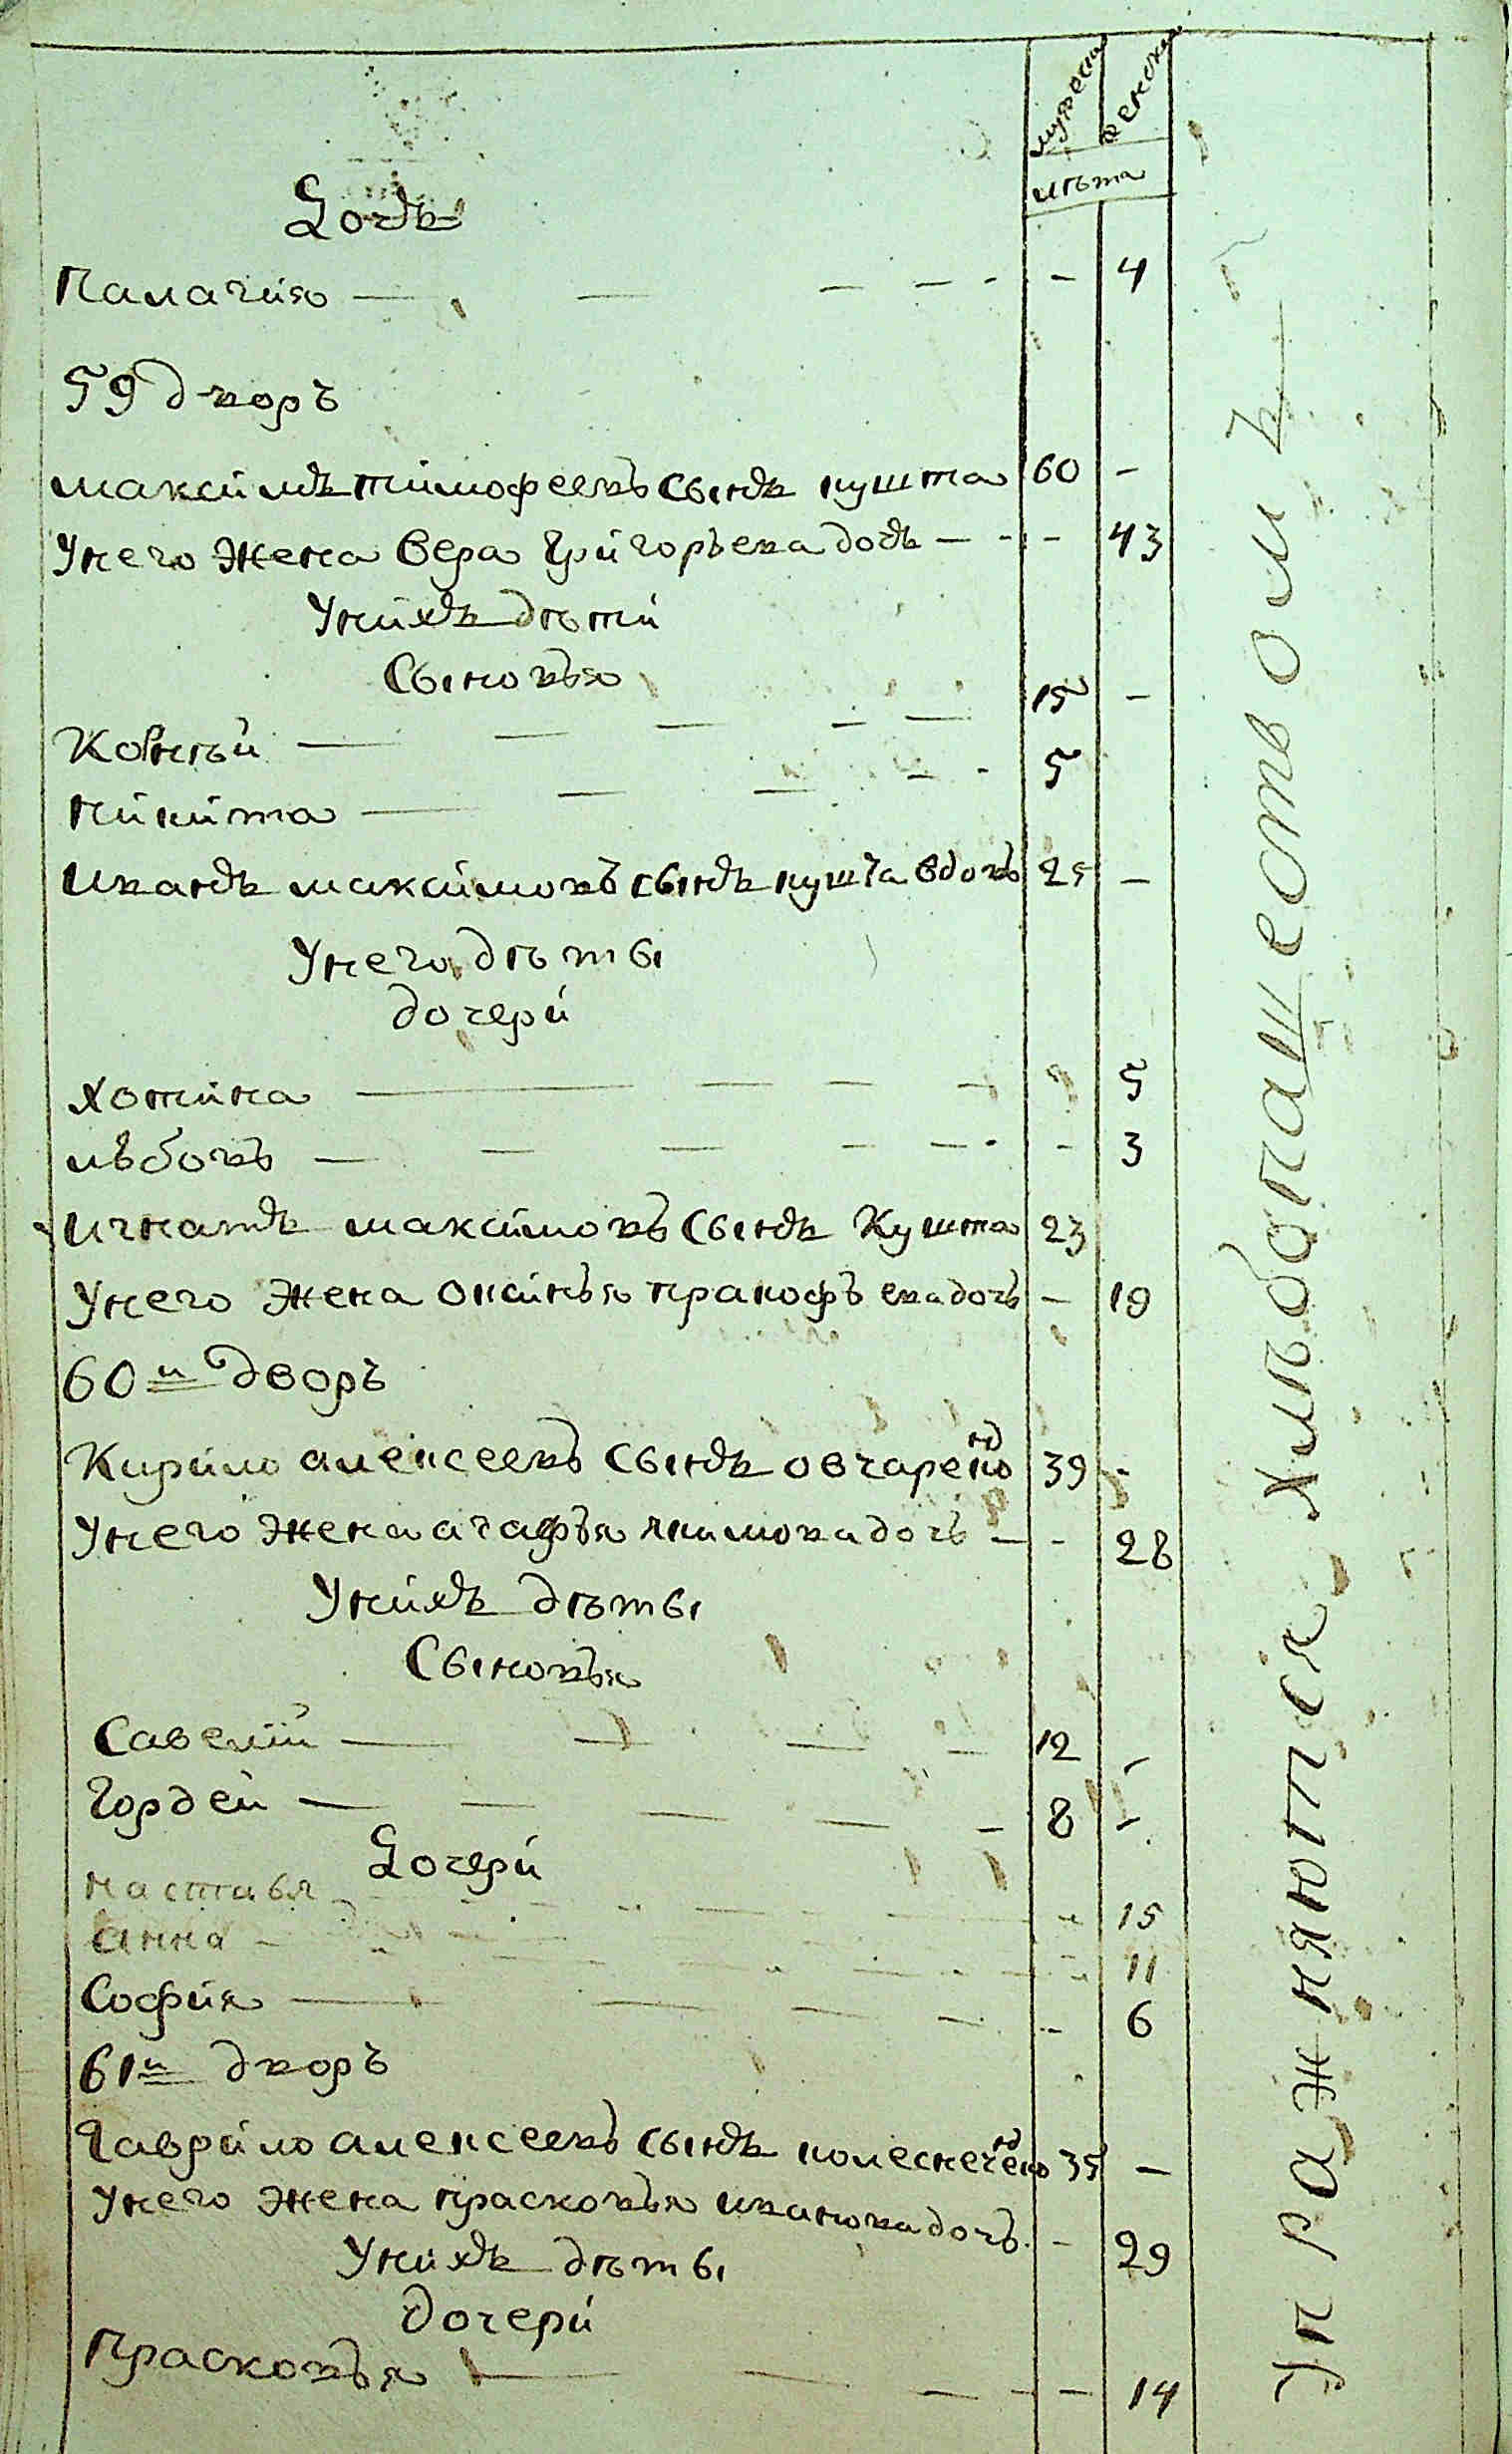 мужеска женска
лѣта
Дочь
Палагия — — — — - - 4
59 дворъ
Максимъ Тимофеевъ сынъ Кушта 60 -
У него жена Вера Григорьева дочь — - - 43
У нихъ дѣти
Сыновья
Корнѣй — — — — — 15 -
Никита — — — - - 5
Иванъ Максимовъ сынъ Кушта вдовъ 25 —
У него дѣты
дочери
Хотина — — — — 5
Любовь — — — — — - - 3
Игнатъ Максимовъ сынъ Кушта 23
У него жена Оксинья Пракофъева дочь — 19
60й дворъ
Кирило Алексеевъ сынъ Овчаренко 39 -
У него жена Агафья Якимова дочь — - 28
У нихъ дѣты
Сыновья
Савелий — — — — 12 -
Гордей — — — — — 8 -
Дочери
Настасья 15
Анна — 11
София — — — — - 6
61й дворъ
Гаврило Алексеевъ сынъ Колесниченко 35 —
У него жена Прасковья Иванова дочь - 29
У нихъ дѣты
Дочери
Прасковья — — — - — 14
Упражняются хлѣбопашествомъ